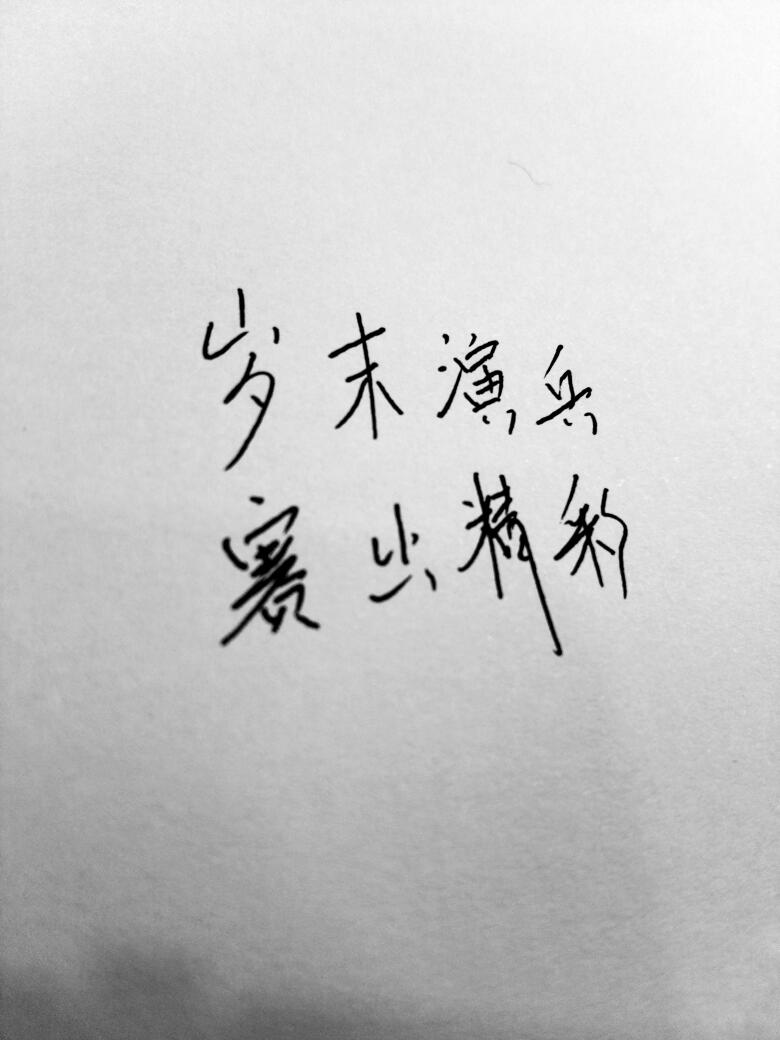 岁末演兵
赛出精彩